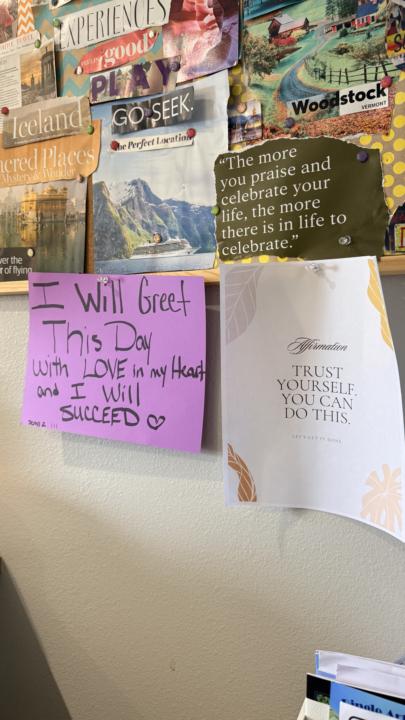 EXPERIENCES
good
PLAY
GO SEEK.
the Perfect Location
Woodstock
VERMONT
Iceland
Sacred Places
Mystery & Wonder
"The more
you praise and
celebrate your
life, the more
there is in life to
celebrate."
over the
of flying
I Will Greet
This Day
with LOVE in my Heart
and I Will
SUCCEED ♡
Affirmation
TRUST
YOURSELF.
YOU CAN
DO THIS.